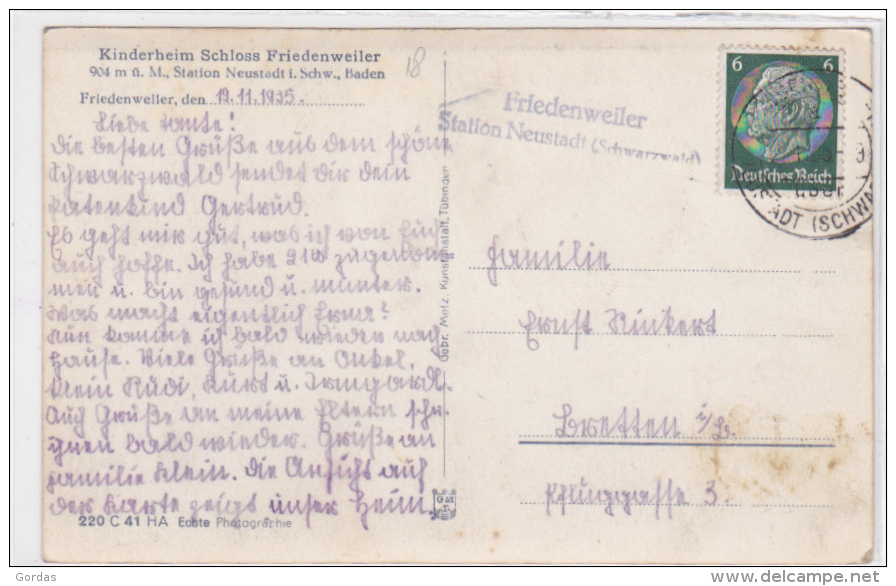 Kinderheim Schloss Friedenweiler
904 m ü. M., Station Neustadt i. Schw., Baden
Friedenweiler, den 19.11.1935.
18
Liebe Tante!
Die besten Grüße aus dem schöne
Schwarzwald sendet dir dein
Patenkind Gertrud.
Es geht mir gut, was ich von Euch
auch hoffe. Ich habe 2 zugenom-
men u. bin gesund u. munter.
Was macht eigentlich Erna?
Nun komme ich bald wieder nach
Hause. Viele Grüße an Onkel,
Klein Rudi, Kurt u. Irmgard.
Auch Grüße an meine Eltern
ihnen bald wieder. Grüße an
Familie Klein. Die Ansicht auf
der Karte zeigt unser Heim.
220 C 41 HA Echte Photographie
Gebr. Metz, Kunstanstalt, Tübingen
GMT
Friedenweiler
Station Neustadt (Schwarzwald)
6 6
Deutsches Reich
STADT (SCHWA
Familie
Ernst Rinkert
Bretten i/B.
Pfluggasse 3.
Gordas
www.delcampe.net